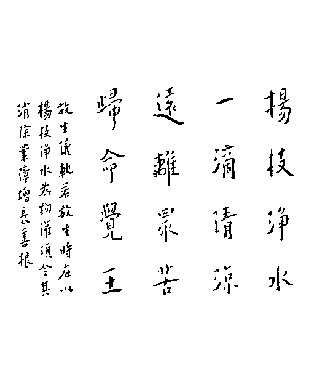 楊枝淨水
一滴清涼
遠離眾苦
歸命覺王
放生儀軌若放生時應以
楊枝淨水為物灌頂令其
消除業障增長善根